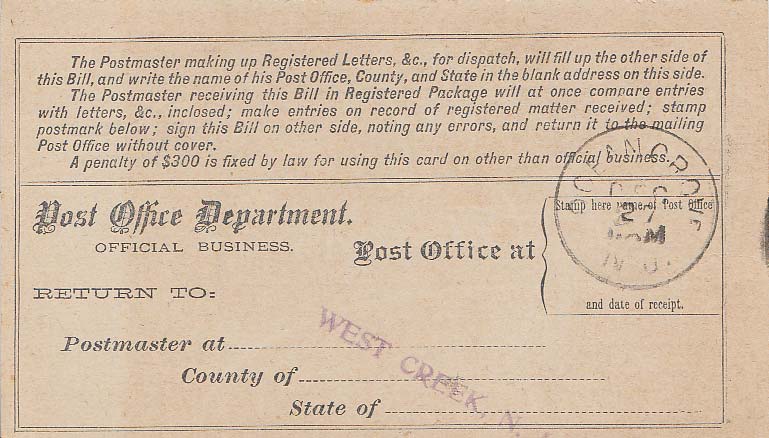 The Postmaster making up Registered Letters, &c., for dispatch, will fill up the other side of
this Bill, and write the name of his Post Office, County, and State in the blank address on this side.
The Postmaster receiving this Bill in Registered Package will at once compare entries
with letters, &c., inclosed; make entries on record of registered matter received; stamp
postmark below; sign this Bill on other side, noting any errors, and return it to the mailing
Post Office without cover.
A penalty of $300 is fixed by law for using this card on other than official business.
Post Office Department.
OFFICIAL BUSINESS.
Post Office at
Stamp here name of Post Office
and date of receipt.
OCEAN GROVE
DEC
27
N.J.
RETURN TO:
Postmaster at
County of
State of
WEST CREEK, N.